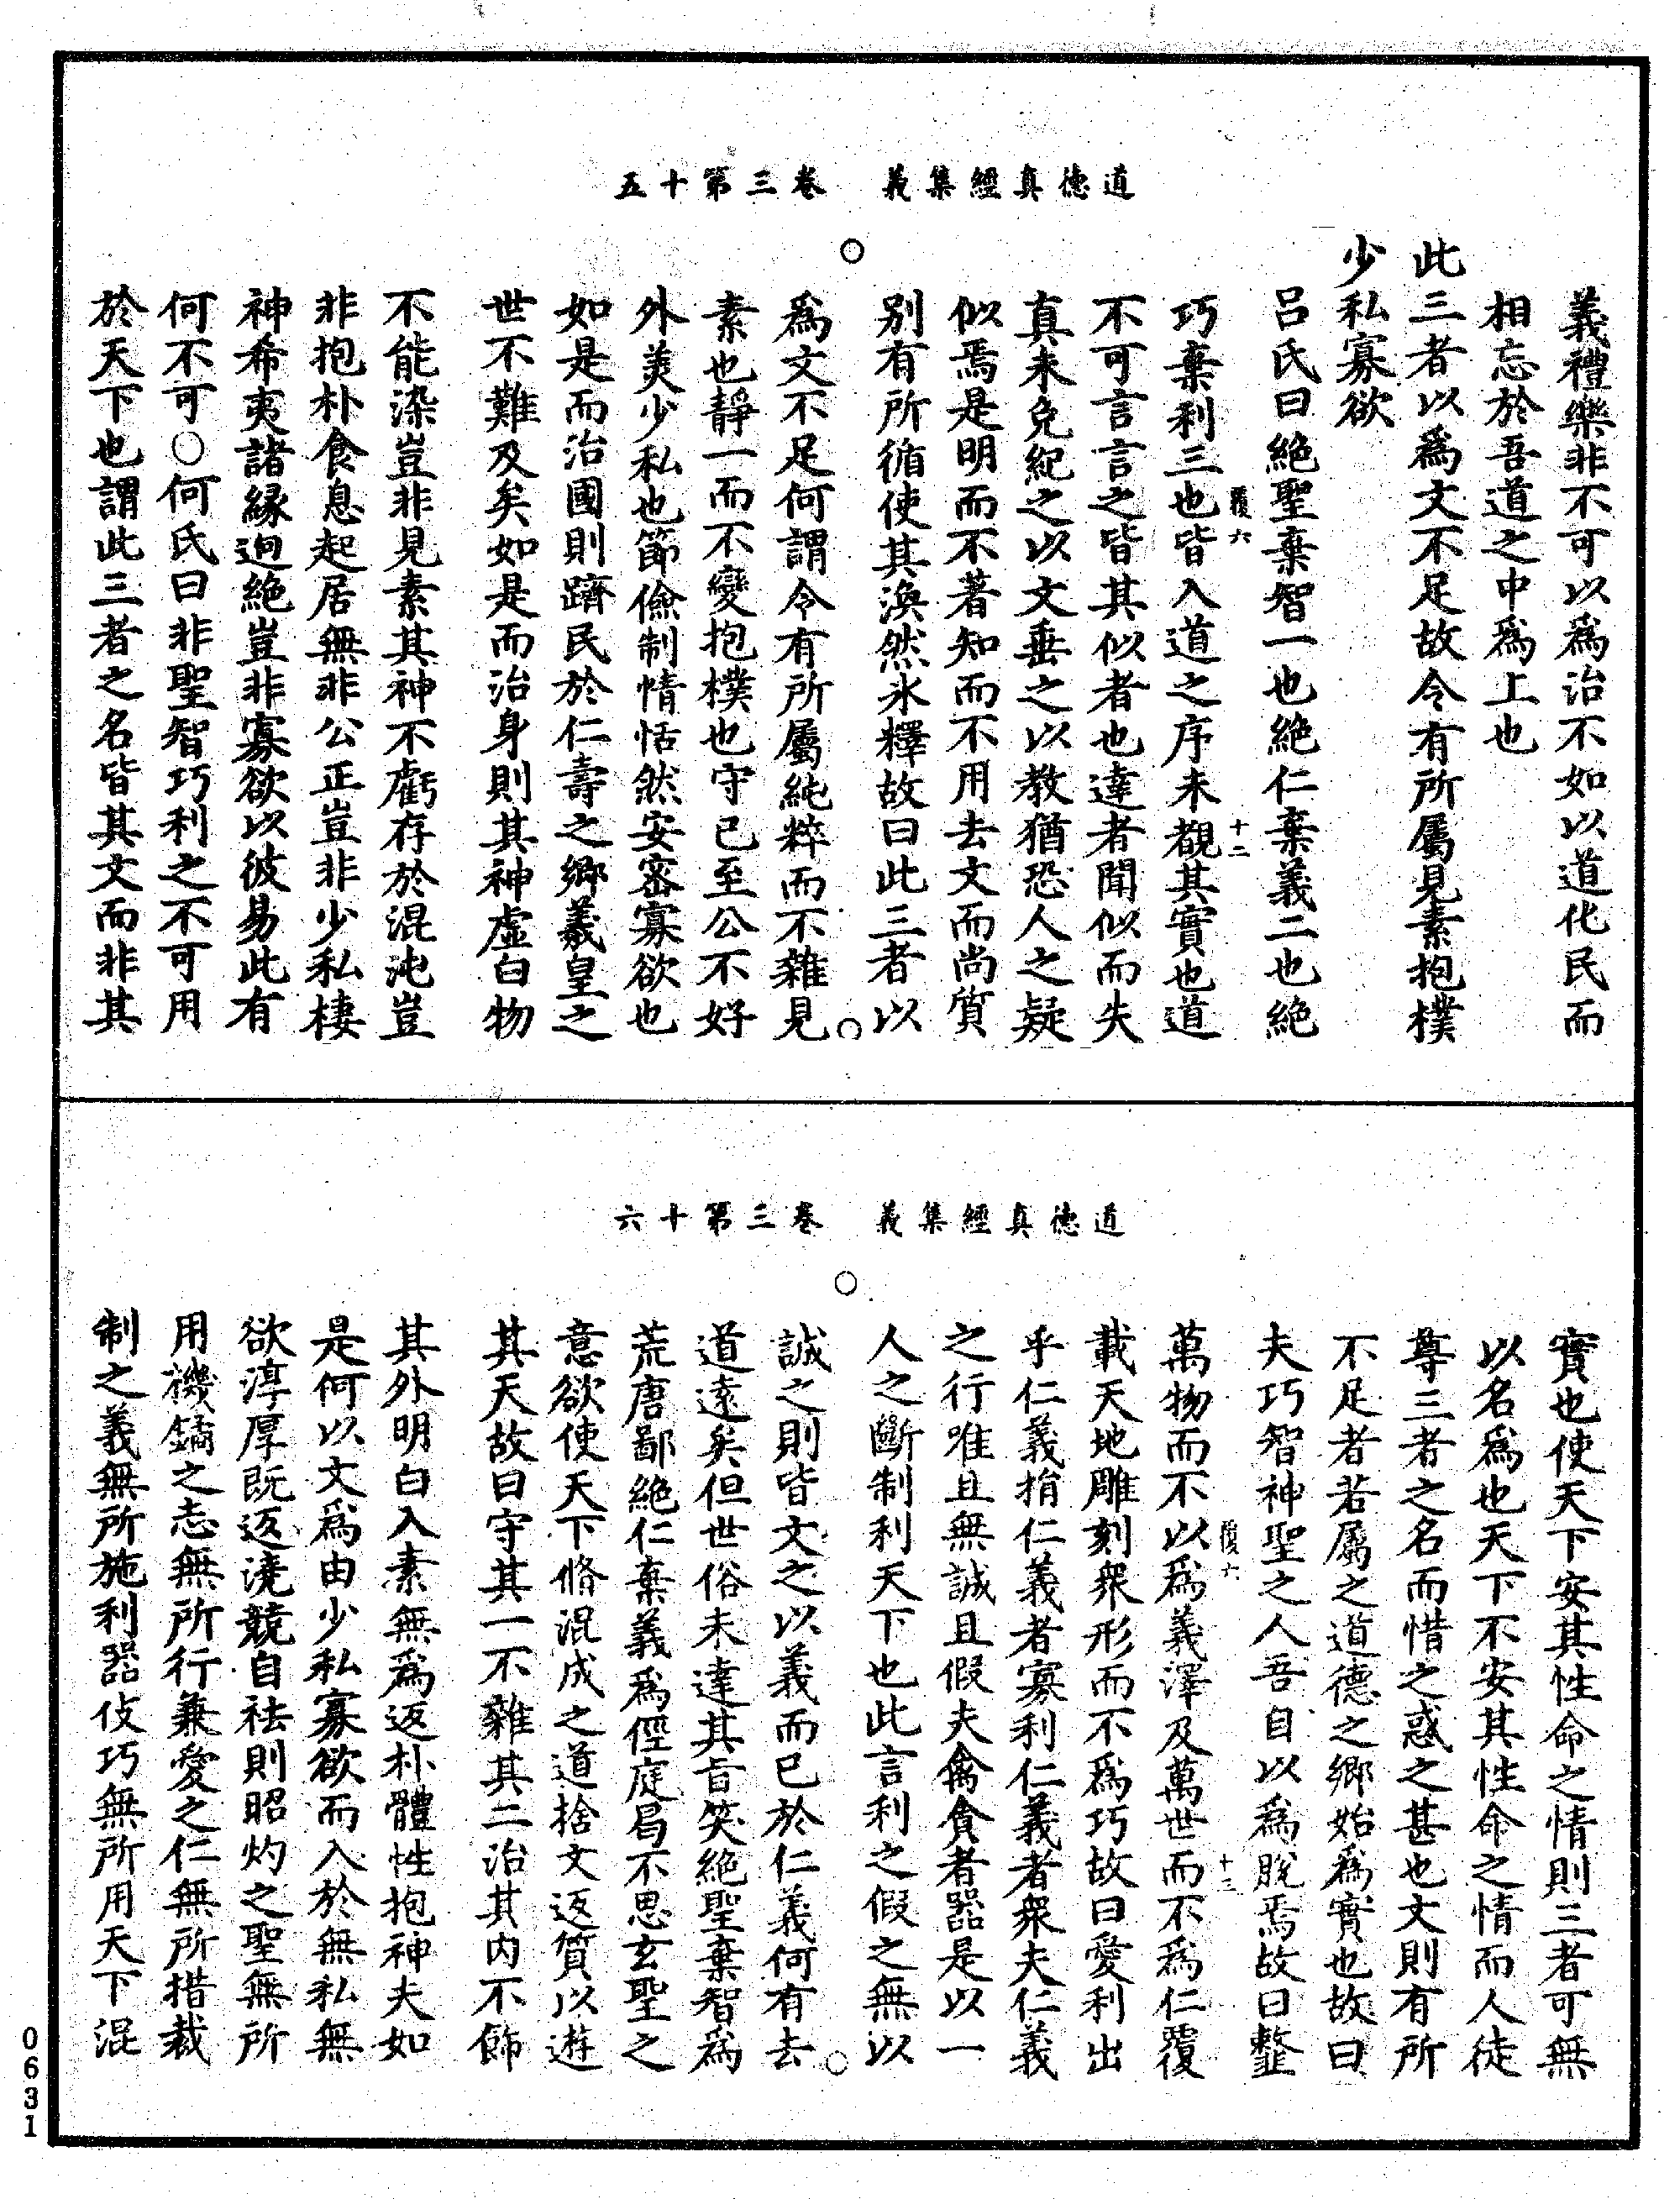 道德真經集義　卷三第十五
義禮樂非不可以為治不如以道化民而
相忘於吾道之中為上也
此三者以為文不足故令有所屬見素抱樸
少私寡欲
呂氏曰絕聖棄智一也絕仁棄義二也絕
巧棄利三也皆入道之序未覩其實也道
覆六　十二
不可言言之皆其似者也達者聞似而失
真未免紀之以文垂之以教猶恐人之疑
似焉是明而不著知而不用去文而尚質
別有所循使其渙然氷釋故曰此三者以
為文不足何謂令有所屬純粹而不雜見
素也靜一而不變抱樸也守已至公不好
外美少私也節儉制情恬然安密寡欲也
如是而治國則躋民於仁壽之鄉羲皇之
世不難及矣如是而治身則其神虛白物
不能染豈非見素其神不虧存於混沌豈
非抱朴食息起居無非公正豈非少私棲
神希夷諸緣迥絕豈非寡欲以彼易此有
何不可○何氏曰非聖智巧利之不可用
於天下也謂此三者之名皆其文而非其
道德真經集義　卷三第十六
實也使天下安其性命之情則三者可無
以名為也天下不安其性命之情而人徒
尊三者之名而惜之惑之甚也文則有所
不足者若屬之道德之鄉始為實也故曰
夫巧智神聖之人吾自以為脫焉故曰𩐋
萬物而不以為義澤及萬世而不為仁覆
覆六　十三
載天地雕刻眾形而不為巧故曰愛利出
乎仁義捐仁義者寡利仁義者眾夫仁義
之行唯且無誠且假夫禽貪者器是以一
人之斷制利天下也此言利之假之無以
誠之則皆文之以義而已於仁義何有去
道遠矣但世俗未達其旨笑絕聖棄智為
荒唐鄙絕仁棄義為徑庭曷不思玄聖之
意欲使天下脩混成之道捨文返質以遊
其天故曰守其一不雜其二治其內不飾
其外明白入素無為返朴體性抱神夫如
是何以文為由少私寡欲而入於無私無
欲淳厚既返澆競自祛則昭灼之聖無所
用機鏑之志無所行兼愛之仁無所措裁
制之義無所施利器伎巧無所用天下混
0631